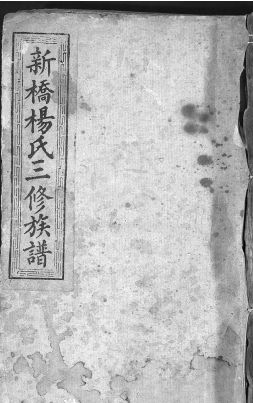 新橋楊氏三修族譜